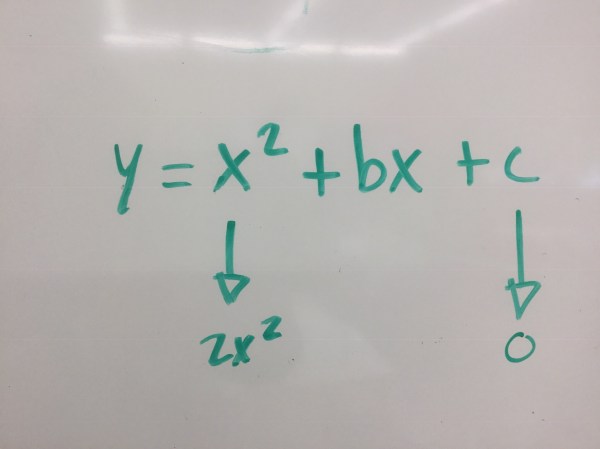 y = x² + bx + c
2x² 0